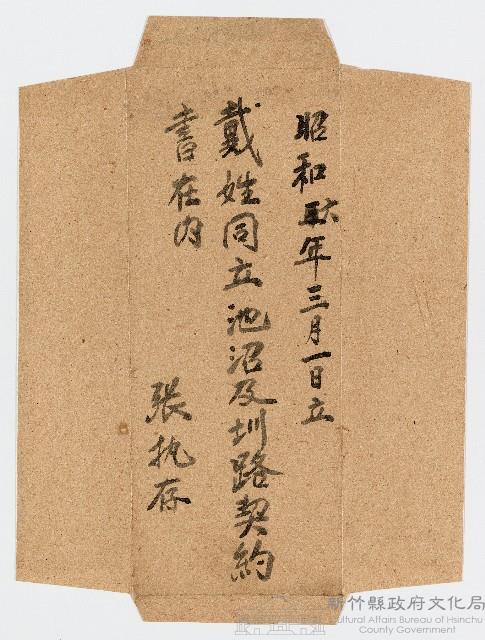 昭和年三月一日立
戴姓同立池沼及圳路契約
書在內
張执存
新竹縣政府文化局
Cultural Affairs Bureau of Hsinchu
County Government